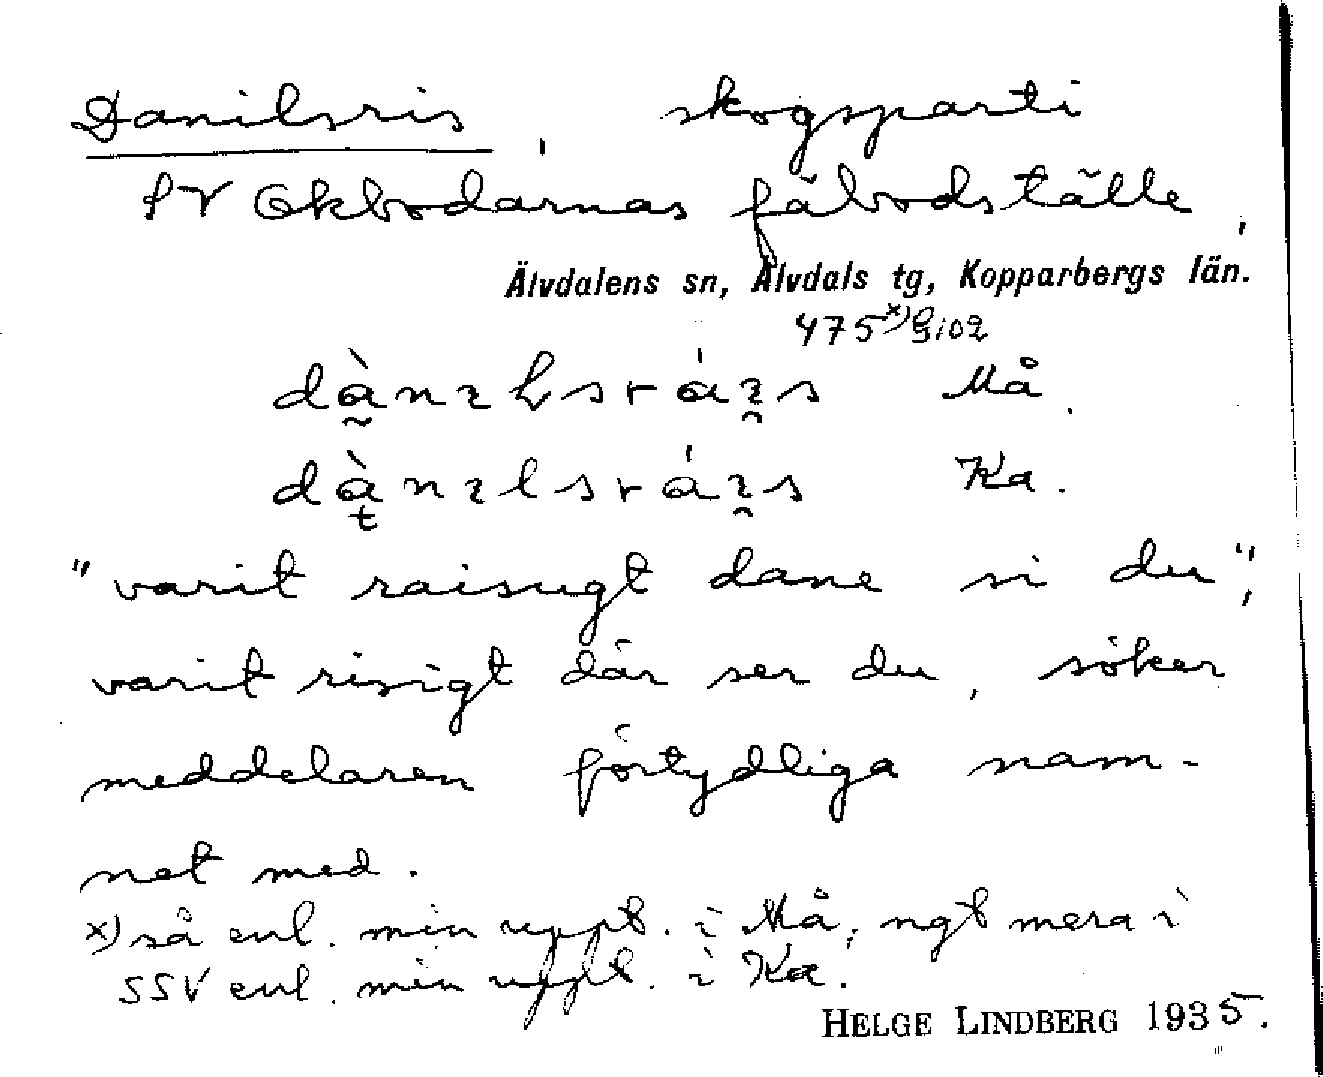 Danilsris, skogsparti
SV Ekbodarnas fäbodställe,
Älvdalens sn, Älvdals tg, Kopparbergs län.
475 x)
Må.
Ka.
"varit raisugt dane si du",
varit risigt där ser du, söker
meddelaren förtydliga nam-
net med.
x) så enl. min uppt. i Må, ngt mera i
SSV enl. min uppt. i Ka.
HELGE LINDBERG 1935.